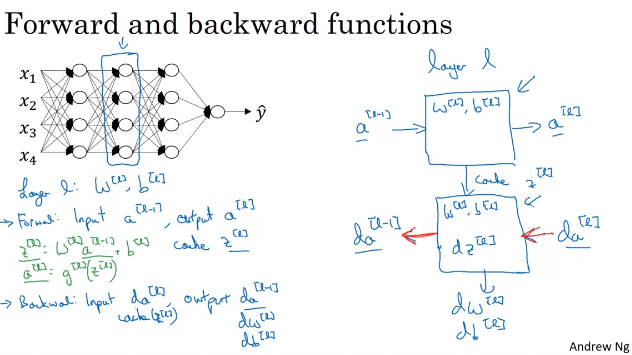 Forward and backward functions
x₁
x₂
x₃
x₄
ŷ
Layer l: W^[l], b^[l]
→ Forward: Input a^[l-1], output a^[l]
cache z^[l]
z^[l] = W^[l] a^[l-1] + b^[l]
a^[l] = g^[l](z^[l])
→ Backward: Input da^[l], output da^[l-1]
cache(z^[l])
dW^[l]
db^[l]
layer l
a^[l-1] → W^[l], b^[l] → a^[l]
cache z^[l]
W^[l], b^[l]
da^[l-1] ← dz^[l] ← da^[l]
dW^[l]
db^[l]
Andrew Ng